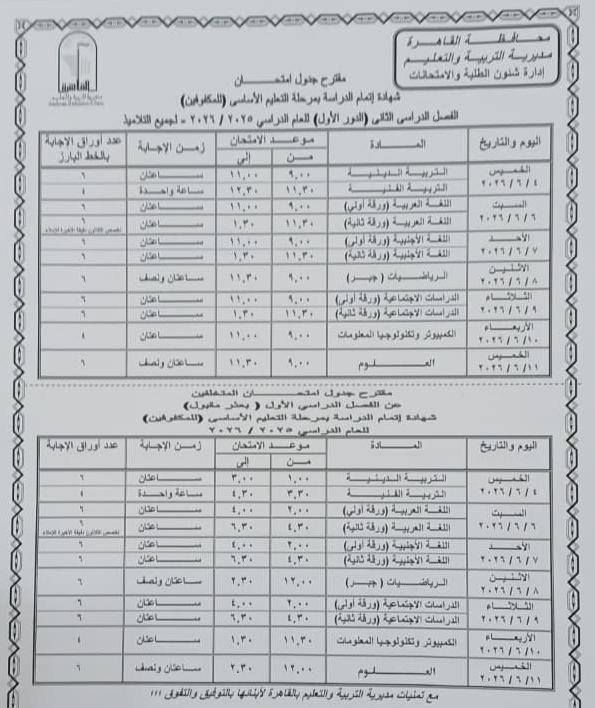 محافظة القاهرة
مديرية التربية والتعليم
إدارة شئون الطلبة والامتحانات
القاهرة
مقترح جدول امتحان
شهادة إتمام الدراسة بمرحلة التعليم الأساسى (للمكفوفين)
الفصل الدراسى الثانى (الدور الأول) للعام الدراسي ٢٠٢٥ / ٢٠٢٦ = لجميع التلاميذ
اليوم والتاريخ المادة موعد الامتحان زمن الإجابة عدد أوراق الإجابة بالخط البارز
من إلى
الخميس ٢٠٢٦/٦/٤ التربية الدينية ٩,٠٠ ١١,٠٠ ساعتان ٦
التربية الفنية ١١,٣٠ ١٢,٣٠ ساعة واحدة ٤
السبت ٢٠٢٦/٦/٦ اللغة العربية (ورقة أولى) ٩,٠٠ ١١,٠٠ ساعتان ٦
اللغة العربية (ورقة ثانية) ١١,٣٠ ١,٣٠ ساعتان ٦
تخصص الثلاثون دقيقة الأخيرة للإملاء
الأحد ٢٠٢٦/٦/٧ اللغة الأجنبية (ورقة أولى) ٩,٠٠ ١١,٠٠ ساعتان ٦
اللغة الأجنبية (ورقة ثانية) ١١,٣٠ ١,٣٠ ساعتان ٦
الاثنين ٢٠٢٦/٦/٨ الرياضيات (جبر) ٩,٠٠ ١١,٣٠ ساعتان ونصف ٦
الثلاثاء ٢٠٢٦/٦/٩ الدراسات الاجتماعية (ورقة أولى) ٩,٠٠ ١١,٠٠ ساعتان ٦
الدراسات الاجتماعية (ورقة ثانية) ١١,٣٠ ١,٣٠ ساعتان ٦
الأربعاء ٢٠٢٦/٦/١٠ الكمبيوتر وتكنولوجيا المعلومات ٩,٠٠ ١١,٠٠ ساعتان ٤
الخميس ٢٠٢٦/٦/١١ العلوم ٩,٠٠ ١١,٣٠ ساعتان ونصف ٦
مقترح جدول امتحان المتخلفين
عن الفصل الدراسى الأول (بعذر مقبول)
شهادة إتمام الدراسة بمرحلة التعليم الأساسى (للمكفوفين)
للعام الدراسي ٢٠٢٥ / ٢٠٢٦
اليوم والتاريخ المادة موعد الامتحان زمن الإجابة عدد أوراق الإجابة
من إلى
الخميس ٢٠٢٦/٦/٤ التربية الدينية ١,٠٠ ٣,٠٠ ساعتان ٦
التربية الفنية ٣,٣٠ ٤,٣٠ ساعة واحدة ٤
السبت ٢٠٢٦/٦/٦ اللغة العربية (ورقة أولى) ٢,٠٠ ٤,٠٠ ساعتان ٦
اللغة العربية (ورقة ثانية) ٤,٣٠ ٦,٣٠ ساعتان ٦
تخصص الثلاثون دقيقة الأخيرة للإملاء
الأحد ٢٠٢٦/٦/٧ اللغة الأجنبية (ورقة أولى) ٢,٠٠ ٤,٠٠ ساعتان ٦
اللغة الأجنبية (ورقة ثانية) ٤,٣٠ ٦,٣٠ ساعتان ٦
الاثنين ٢٠٢٦/٦/٨ الرياضيات (جبر) ١٢,٠٠ ٢,٣٠ ساعتان ونصف ٦
الثلاثاء ٢٠٢٦/٦/٩ الدراسات الاجتماعية (ورقة أولى) ٢,٠٠ ٤,٠٠ ساعتان ٦
الدراسات الاجتماعية (ورقة ثانية) ٤,٣٠ ٦,٣٠ ساعتان ٦
الأربعاء ٢٠٢٦/٦/١٠ الكمبيوتر وتكنولوجيا المعلومات ١١,٣٠ ١,٣٠ ساعتان ٤
الخميس ٢٠٢٦/٦/١١ العلوم ١٢,٠٠ ٢,٣٠ ساعتان ونصف ٦
مع تمنيات مديرية التربية والتعليم بالقاهرة لأبنائها بالتوفيق والتفوق !!!